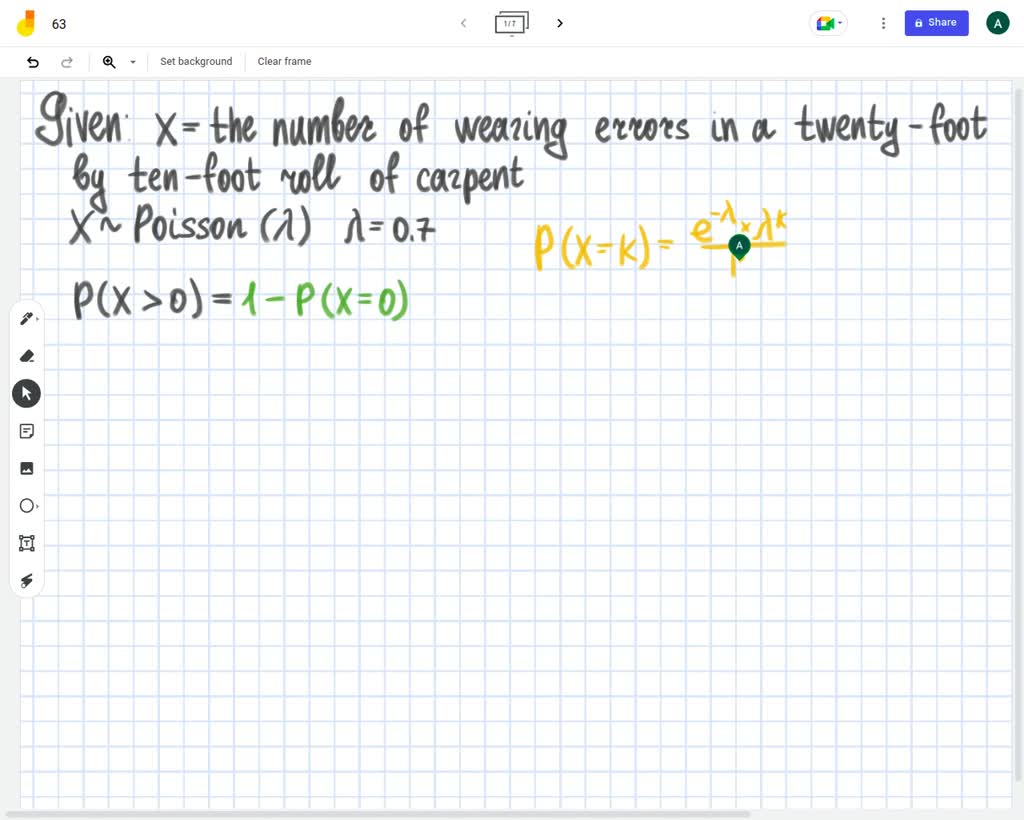 63
1/7
Share
A
Set background
Clear frame
Given: X = the number of weazing errors in a twenty-foot
by ten-foot roll of cazpent
X ~ Poisson (λ) λ = 0.7
P(X = k) = e^-λ × λ^k
A
P(X > 0) = 1 - P(X = 0)
T